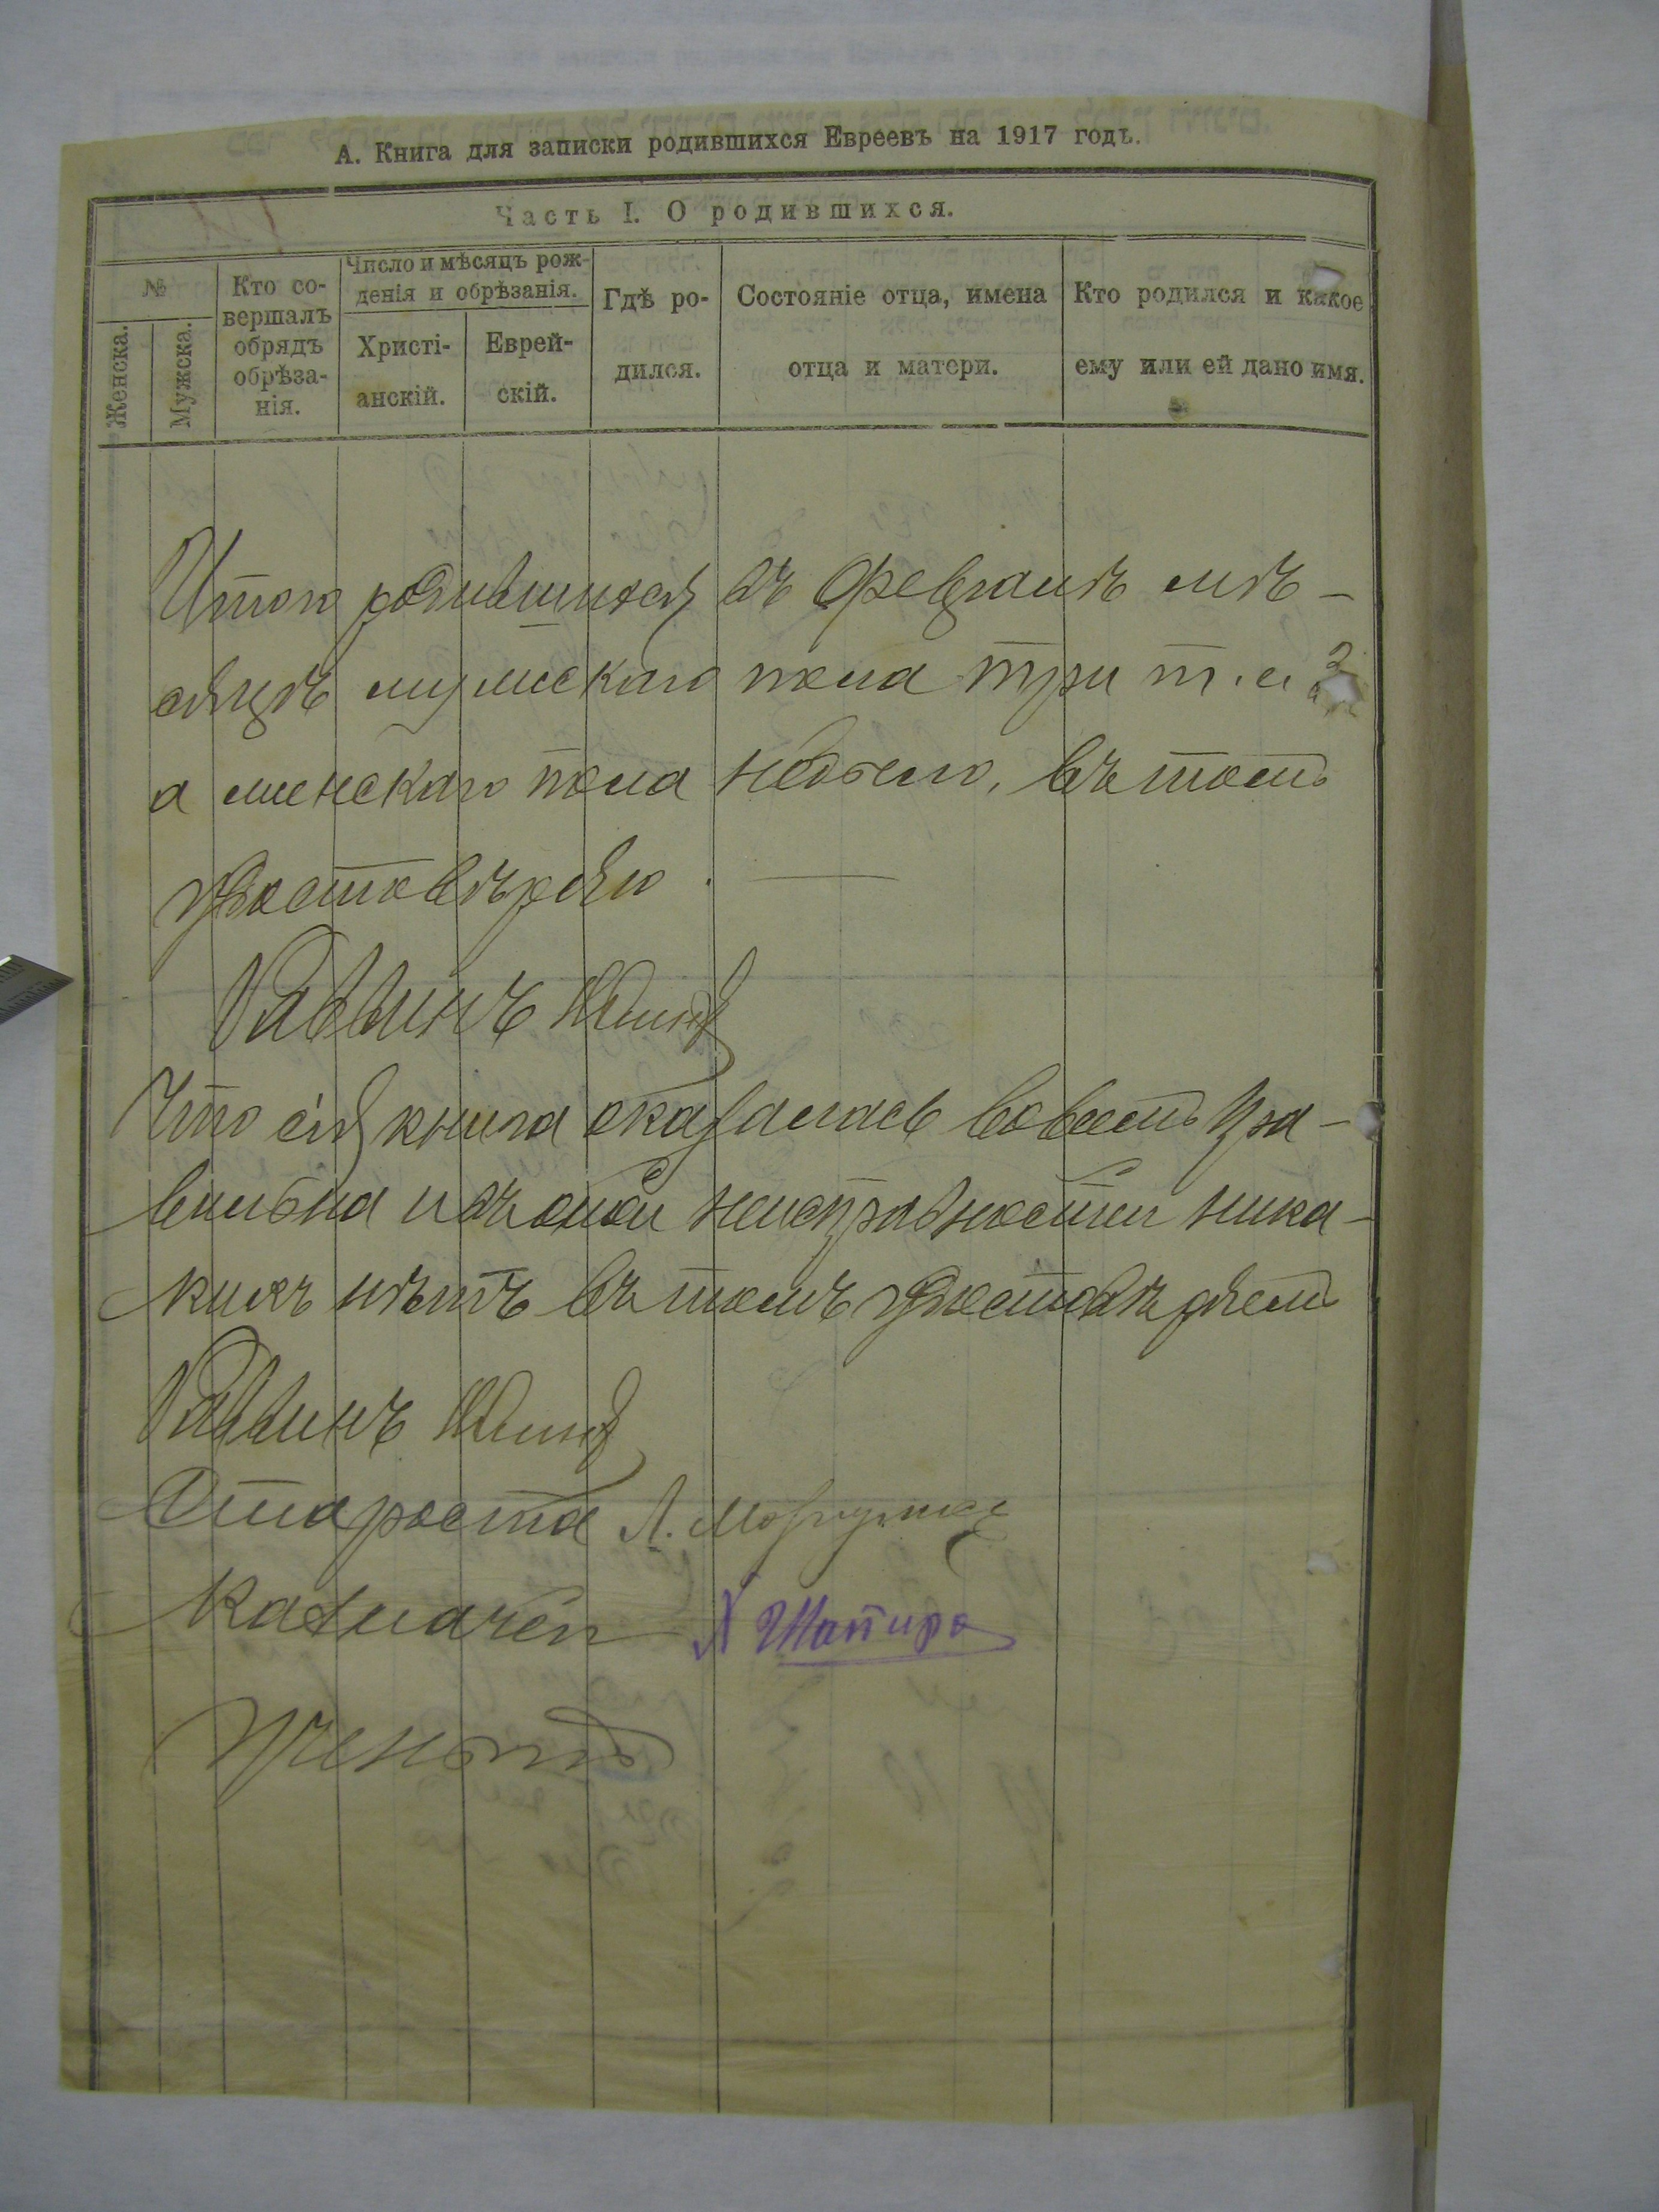 А. Книга для записки родившихся Евреевъ на 1917 годъ.
Часть I. О родившихся.
№
Женска.
Мужска.
Кто со-
вершалъ
обрядъ
обрѣза-
нія.
Число и мѣсяцъ рож-
денія и обрѣзанія.
Христі-
анскій.
Еврей-
скій.
Гдѣ ро-
дился.
Состояніе отца, имена
отца и матери.
Кто родился и какое
ему или ей дано имя.
Итого родившихся въ Февралѣ мѣ-
сяцѣ мужскаго пола три т. е. 3
а женскаго пола небыло, въ томъ
удостовѣряю.
Раввинъ
Что сія книга оказалась во всемъ пра-
вильна и въ оной неисправностей ника-
кихъ нѣтъ въ томъ удостовѣряемъ
Раввинъ
Староста Л.
Казначей Х Шапиро
Ученый